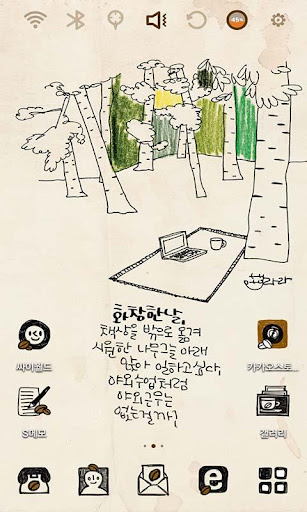 45%
랄라라
화창한 날,
책상을 밖으로 옮겨
시원한 나무그늘 아래
앉아 일하고싶다
야외수업처럼
야외근무는
없는걸까?!
싸이월드
카카오스토...
S메모
갤러리
e